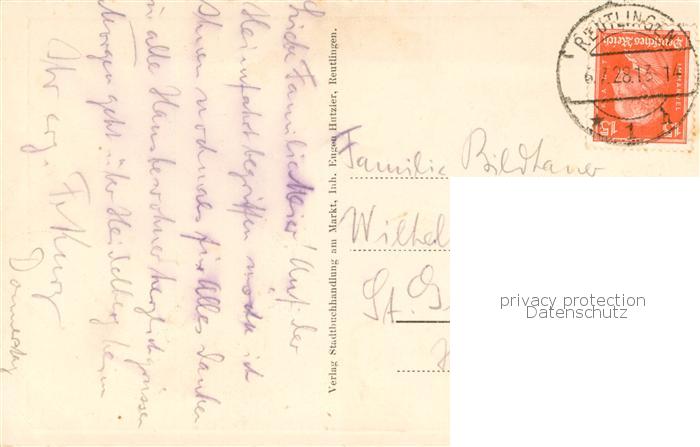 Liebe Familie Meier! Auf der
Heimfahrt begriffen möcht ich
Ihnen nochmals für Alles danken
u. alle Hausbewohner herzlich grüssen
Morgen geht's über Heidelberg heim
Ihr erg. Fr. Kurz
Donnerstag
Verlag Stadtbuchhandlung am Markt, Inh. Eugen Hutzler, Reutlingen.
REUTLINGEN
6.7.28.13-14
* 1 h
Deutsches Reich
IMMANUEL
15 15
Familie
Wilhel
St. G
privacy protection
Datenschutz